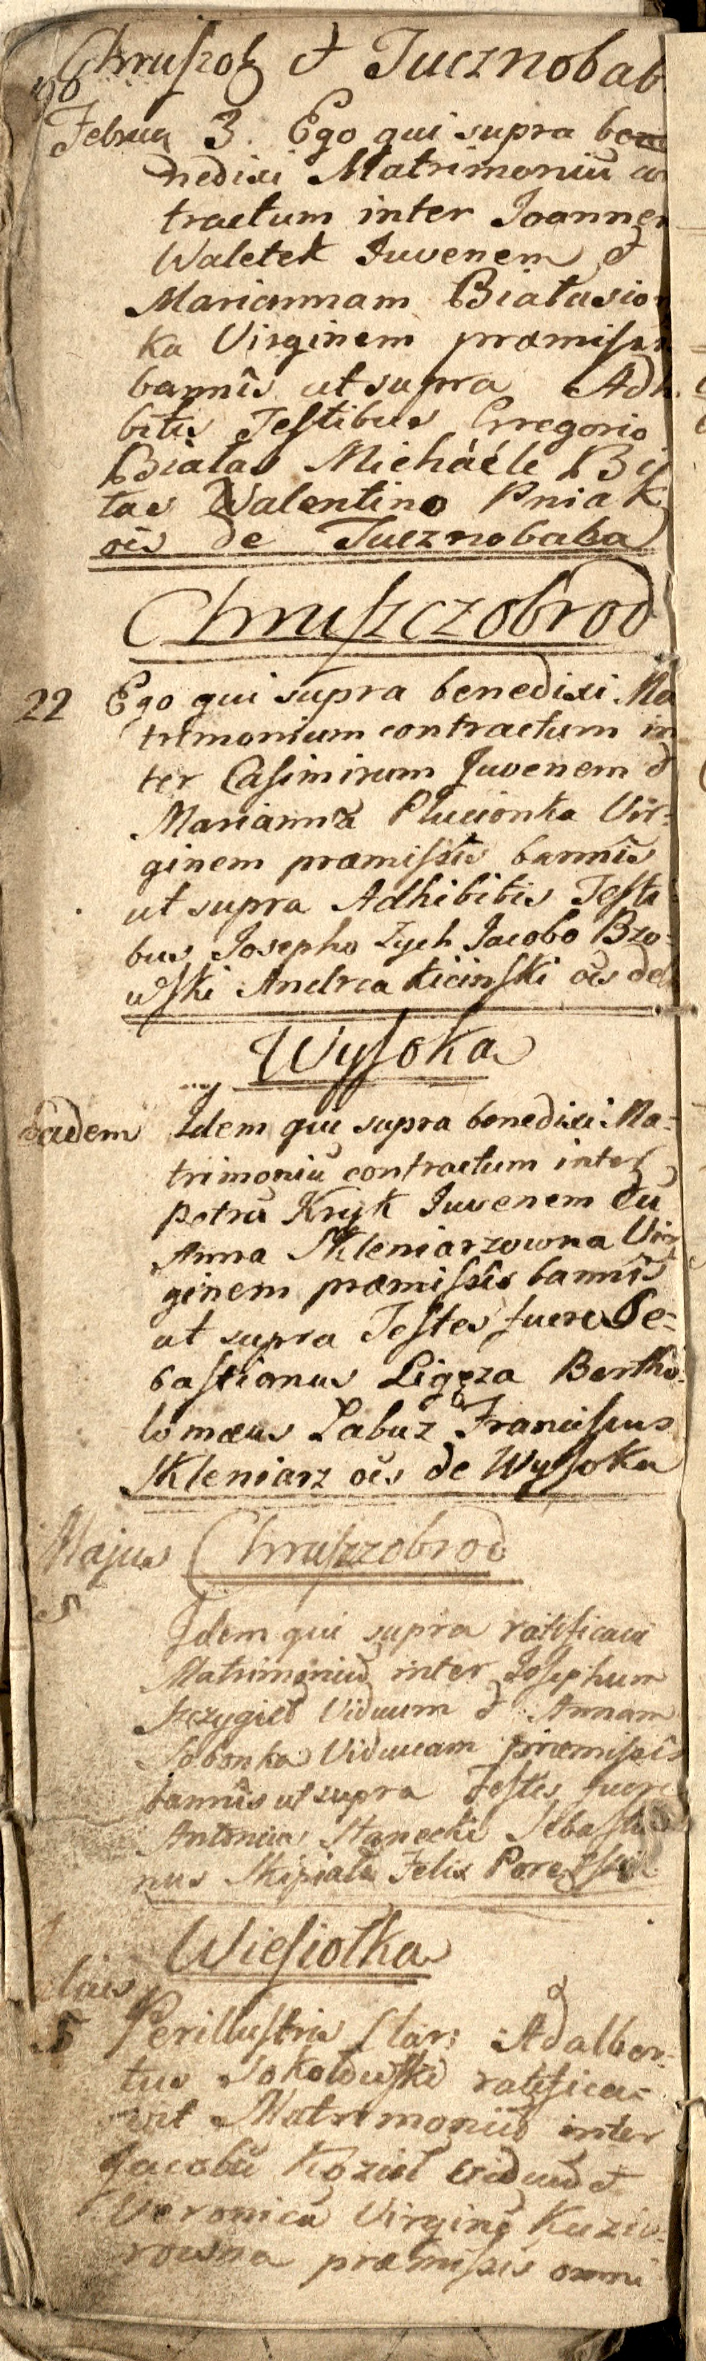 Chruszob et Tucznobab
Februa 3. Ego qui supra be
nedixi Matrimoniū co
tractum inter Joannem
Waletek Juvenem et
Mariannam Białasion
ka Virginem præmissis
bannis ut supra Adh
bitis Testibus Gregorio
Białas Michaéle Bia
łas Walentino Pniak
oēs de Tucznobaba
Chruszczobrod
22 Ego qui supra benedixi Ma
trimonium contractum in
ter Casimirum Juvenem et
Mariannā Plucionka Vir=
ginem præmissis bannis
ut supra Adhibitis Testi
bus Josepho Zych Jacobo Bzo=
wski Andrea Kicinski oēs de
Wysoka
eadem Idem qui supra benedixi Ma=
trimoniū contractum inter
Petrū Kryk Juvenem cū
Anna Skleniarzowna Vir
ginem præmissis bannis
ut supra Testes fuere Se=
bastianus Ligęza Bartho=
lomæus Łabuz Franciscus
Skleniarz oēs de Wysoka
Majus Chruszzobrod
5
Idem qui supra ratificavi
Matrimoniū inter Josephum
Szczygieł Viduum et Annam
Sobonka Viduam præmissis
bannis ut supra Testes fuere
Antonius Stanecki Sebastia
nus Skipiała Felix
Wiesiołka
5 Perillustris Adalber=
tus Sokołowski ratifica=
vit Matrimoniū inter
Jacobū Kozieł viduū et
Veronicā Virginē Kuzio=
rowna præmissis omni